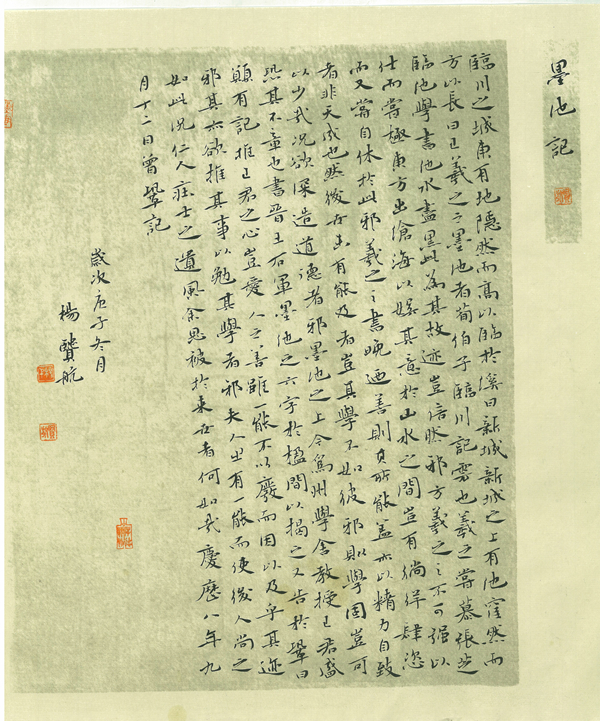 墨池記
臨川之城東有地隱然而高以臨於溪曰新城新城之上有池窪然而
方以長曰王羲之之墨池者荀伯子臨川記雲也羲之嘗慕張芝
臨池學書池水盡黑此為其故迹豈信然邪方羲之之不可強以
仕而嘗極東方出滄海以娛其意於山水之間豈有徜徉肆恣
而又嘗自休於此邪羲之之書晚迺善則其所能蓋亦以精力自致
者非天成也然後世未有能及者豈其學不如彼邪則學固豈可
以少哉況欲深造道德者邪墨池之上今為州學舍教授王君盛
恐其不章也書晉王右軍墨池之六字於楹間以揭之又告於鞏曰
願有記推王君之心豈愛人之善雖一能不以廢而因以及乎其迹
邪其亦欲推其事以勉其學者邪夫人之有一能而使後人尚之
如此況仁人莊士之遺風余思被於來世者何如哉慶歷八年九
月十二日曾鞏記
歲次庚子冬月
楊 航